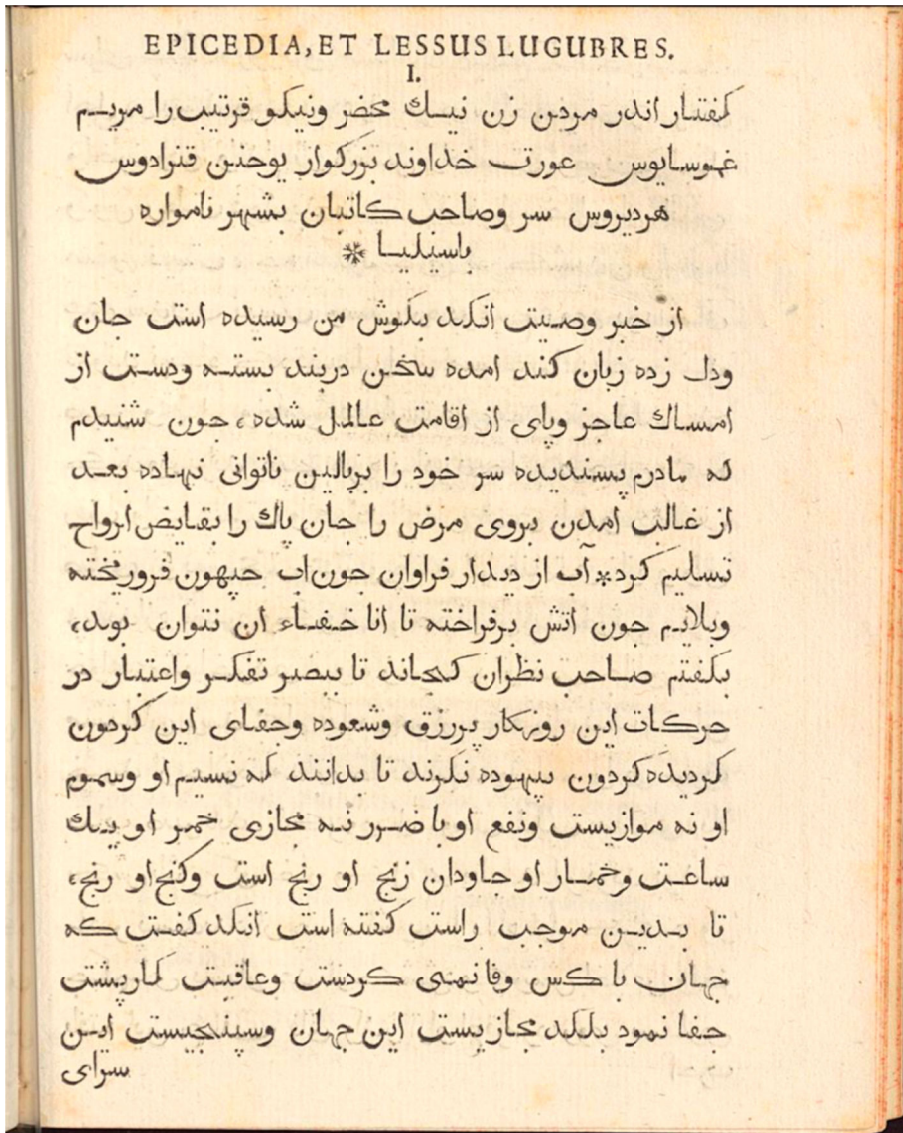 EPICEDIA, ET LESSUS LUGUBRES.
I.
كفتار اندر مردن زن نيك محضر ونيكو قرتيب را مريم
غموسايوس عورت خداوند بزركوار يوحنن قنرادوس
هرديروس سر وصاحب كاتبان بشهر نامواره
باسيليا
از خبر وصيت انكه بكوش من رسيده است جان
ودل زده زبان كند امده سخن دربند بسته ودست از
امساك عاجز وپاى از اقامت عالمل شده، جون شنيدم
له مادرم پسنديده سر خود را بربالين ناتوانى نهاده بعد
از غالب امدن بروى مرض را جان پاك را بقايض ارواح
تسليم كرد * آب از ديدار فراوان جون اب جيهون فروريخته
وبلايم جون اتش برفراخته تا انا خفاء ان نتوان بود،
بكفتم صاحب نظران كجاند تا ببصر تفكر واعتبار در
حركات اين روزكار پرزق وشعوده وجفاى اين كردون
كرديده كردون بيهوده نكرند تا بدانند كه نسيم او وسموم
او نه موازيست ونفع او با ضرر نه مجازى خمر او يك
ساعت وخمار او جاودان زنج او رنج است وكنج او رنج،
تا بدين موجب راست كفته است انكه كفت كه
جهان با كس وفا نمى كردست وعاقبت لمارپشت
جفا نمود بلكه مجازيست اين جهان وسپنجيست اين
سراى